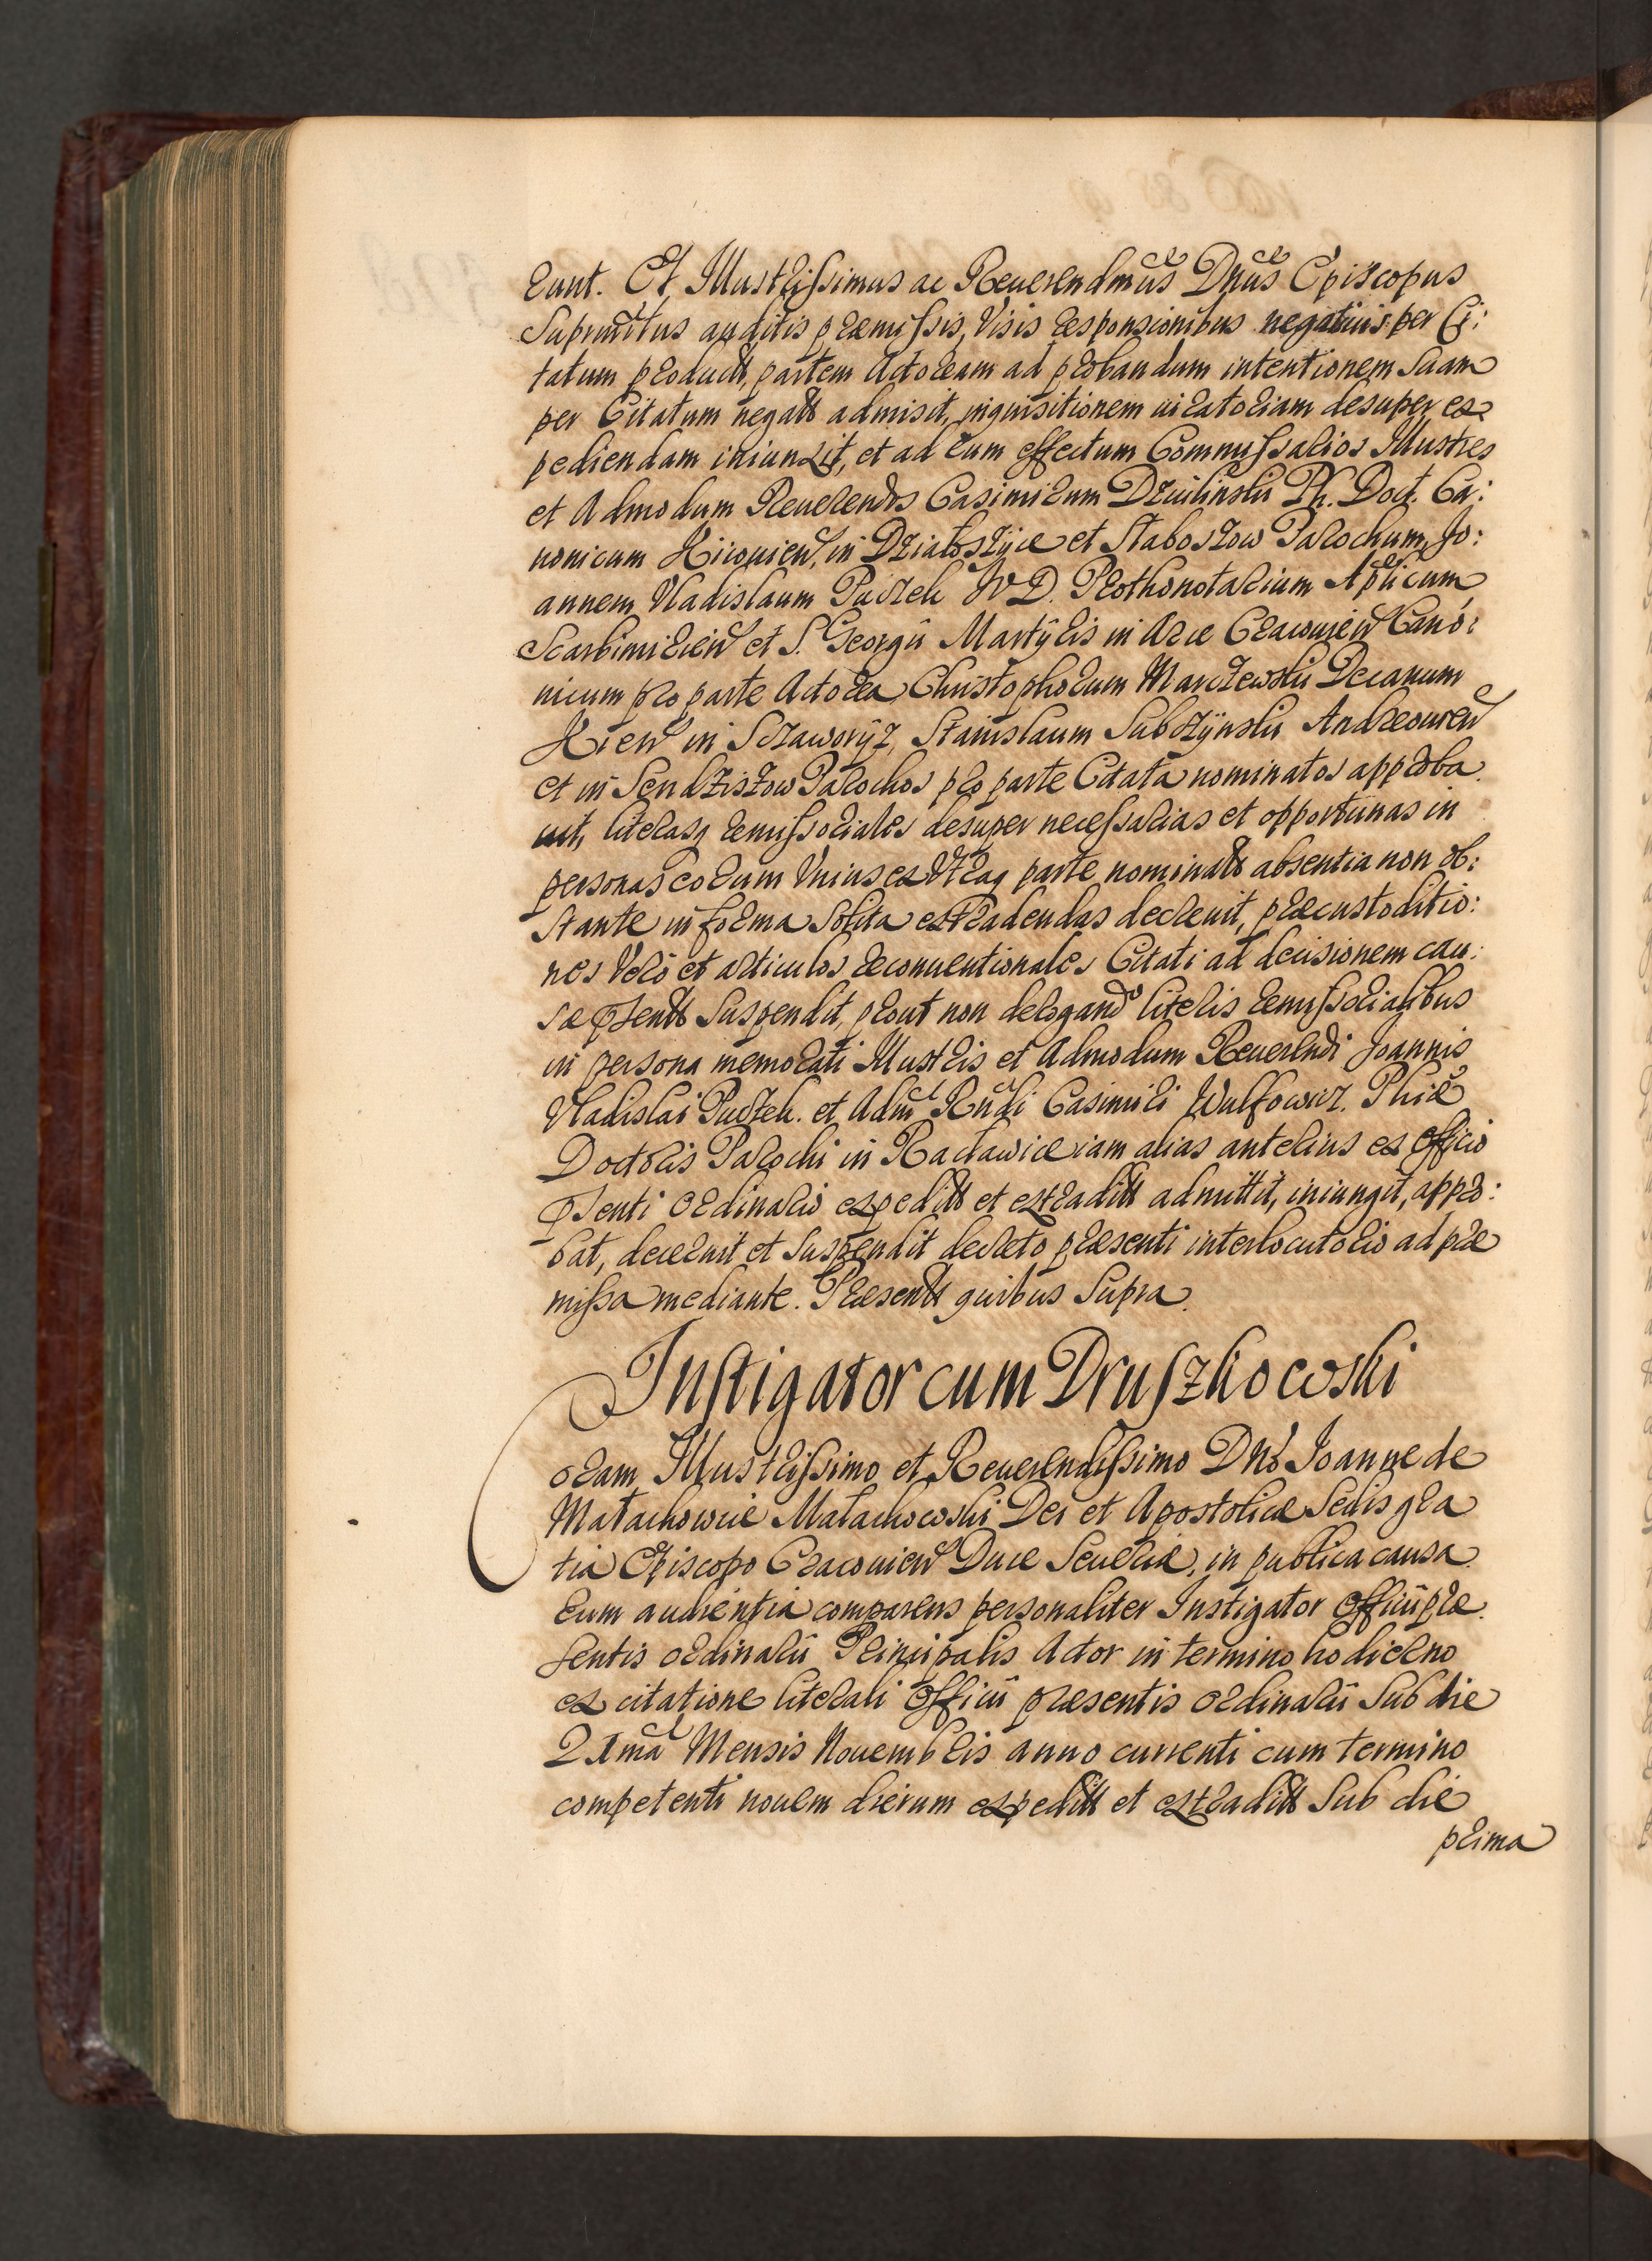 runt. Et Illustrissimus ac Reuerendmus Dnus Episcopus
Suprmtus auditis præmissis, Visis responsionibus negatiuis per Ci:
tatum productt, partem Actoream ad probandum intentionem Suam
per Citatum negatt admisit, inquisitionem iuratoriam desuper ex
pediendam iniunxit, et ad eum effectum Commissarios Illustres
et Admodum Reuerendos Casimirum Dzwilinski Ph. Doct. Ca:
nonicum Kiiouien, in Działoszÿce et Słaboszow Parochum, Jo:
annem Vladislaum Puczek IVD. Prothonotarium Aplicum,
Scarbimirien et S. Georgÿ Martÿris in Arce Cracouien Cano:
nicum pro parte Actorea, Christophorum Marczewski Decanum
Kien in Sczaworÿz, Stanislaum Subszÿnski Andreouien
et in Sendziszow Parochos pro parte Citata nominatos approba
uit, literasq remissoriales desuper necessarias et opportunas in
personas eorum Vnius ex Vtraq parte nominatt absentia non ob:
stante in forma Solita extradendas decreuit, præcustoditio:
nes Verò et articulos reconuentionales Citati ad decisionem cau:
sæ pſentt Suspendit, prout non derogando literis remissorialibus
in persona memorati Illustris et Admodum Reuerendi Joannis
Vladislai Puczek. et Adm Rndi Casimiri Wulfowicz. Phiæ
Doctoris Parochi in Racławice iam alias anterius ex Officio
pſenti Ordinario expeditt et extraditt admittit, iniungit, appro:
bat, decernit et Suspendit decreto præsenti interlocutorio ad præ
missa mediante. Præsentt quibus Supra.
Instigator cum Druszkowski
Coram Illustrissimo et Reuerendissimo Dno Joanne de
Małachowice Małachowski Dei et Apostolicæ Sedis gra
tia Episcopo Cracouien Duce Seueriæ, in publica causa
rum audientia comparens personaliter Instigator Officÿ præ
sentis Ordinarÿ Principalis Actor in termino hodierno
ex citatione literali Officÿ præsentis Ordinarÿ Sub die
21ma Mensis Nouembris anno currenti cum termino
competenti nouem dierum expeditt et extraditt Sub die
prima